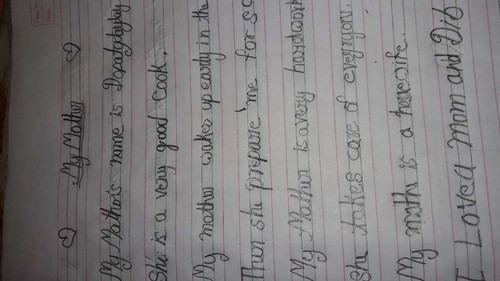 My Mather
My Mather's name is
She is a very good cook.
My mother wakes up early in the
Then she prepare me for sc
My Mather is a very hardwork
She takes care of everyon.
My mothr is a housewife.
I Loved Mom and Dib